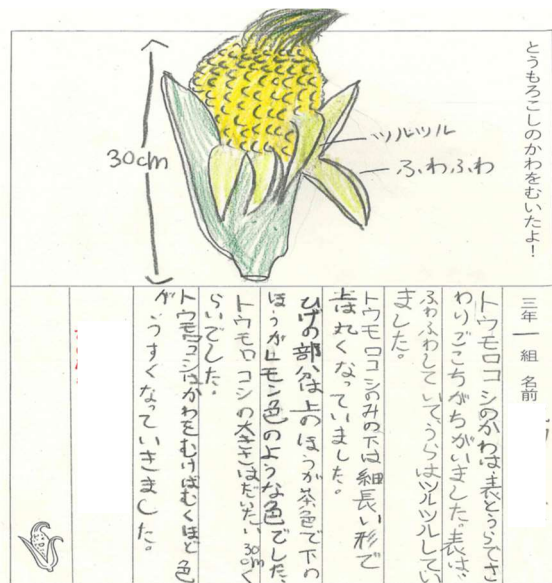 とうもろこしのかわをむいたよ！
30cm
ツルツル
ふわふわ
三年一組 名前
トウモロコシのかわは、表とうらでさ
わりごこちがちがいました。表は、
ふわふわしていて、うらはツルツルしてい
ました。
トウモロコシのみの下は細長い形で
上は丸くなっていました。
ひげの部分は上のほうが茶色で下の
ほうがレモン色のような色でした。
トウモロコシの大きさはだいたい30cmく
らいでした。
トウモロコシはかわをむけばむくほど色
がうすくなっていきました。